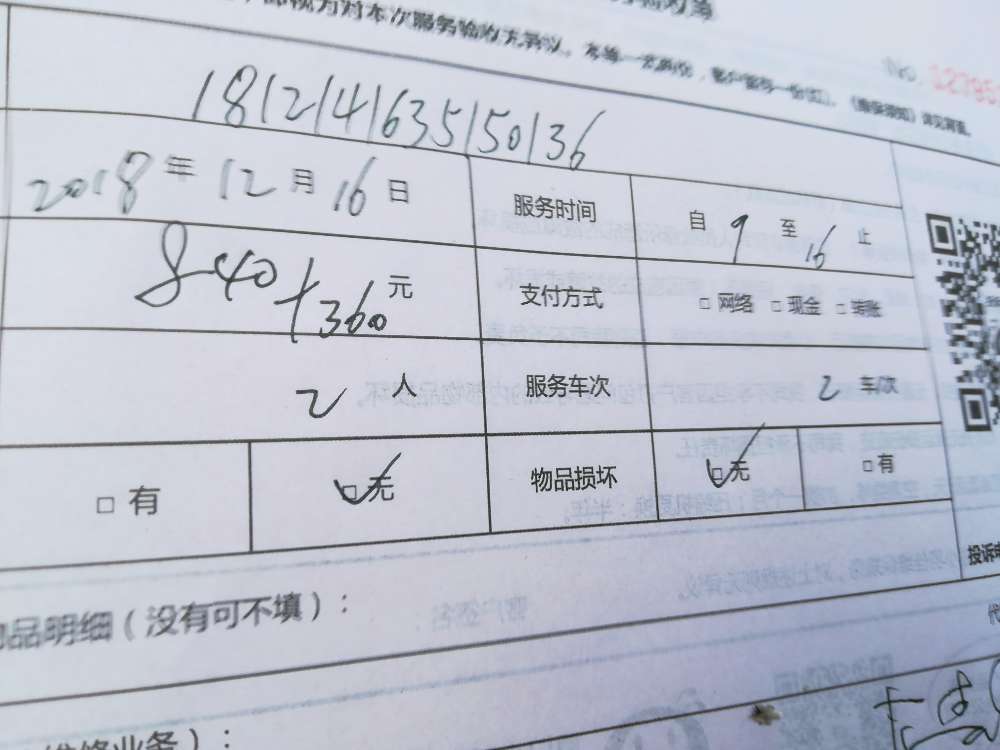 视为对本次服务验收无异议。本单一式两份，客户留存一份
No.
1812141635150136
2018年12月16日 服务时间 自9至16止
840+360元 支付方式 □网络 □现金 □转账
2人 服务车次 2车/次
□有 □无 物品损坏 □无 □有
投诉
品明细（没有可不填）：
维修业务）：